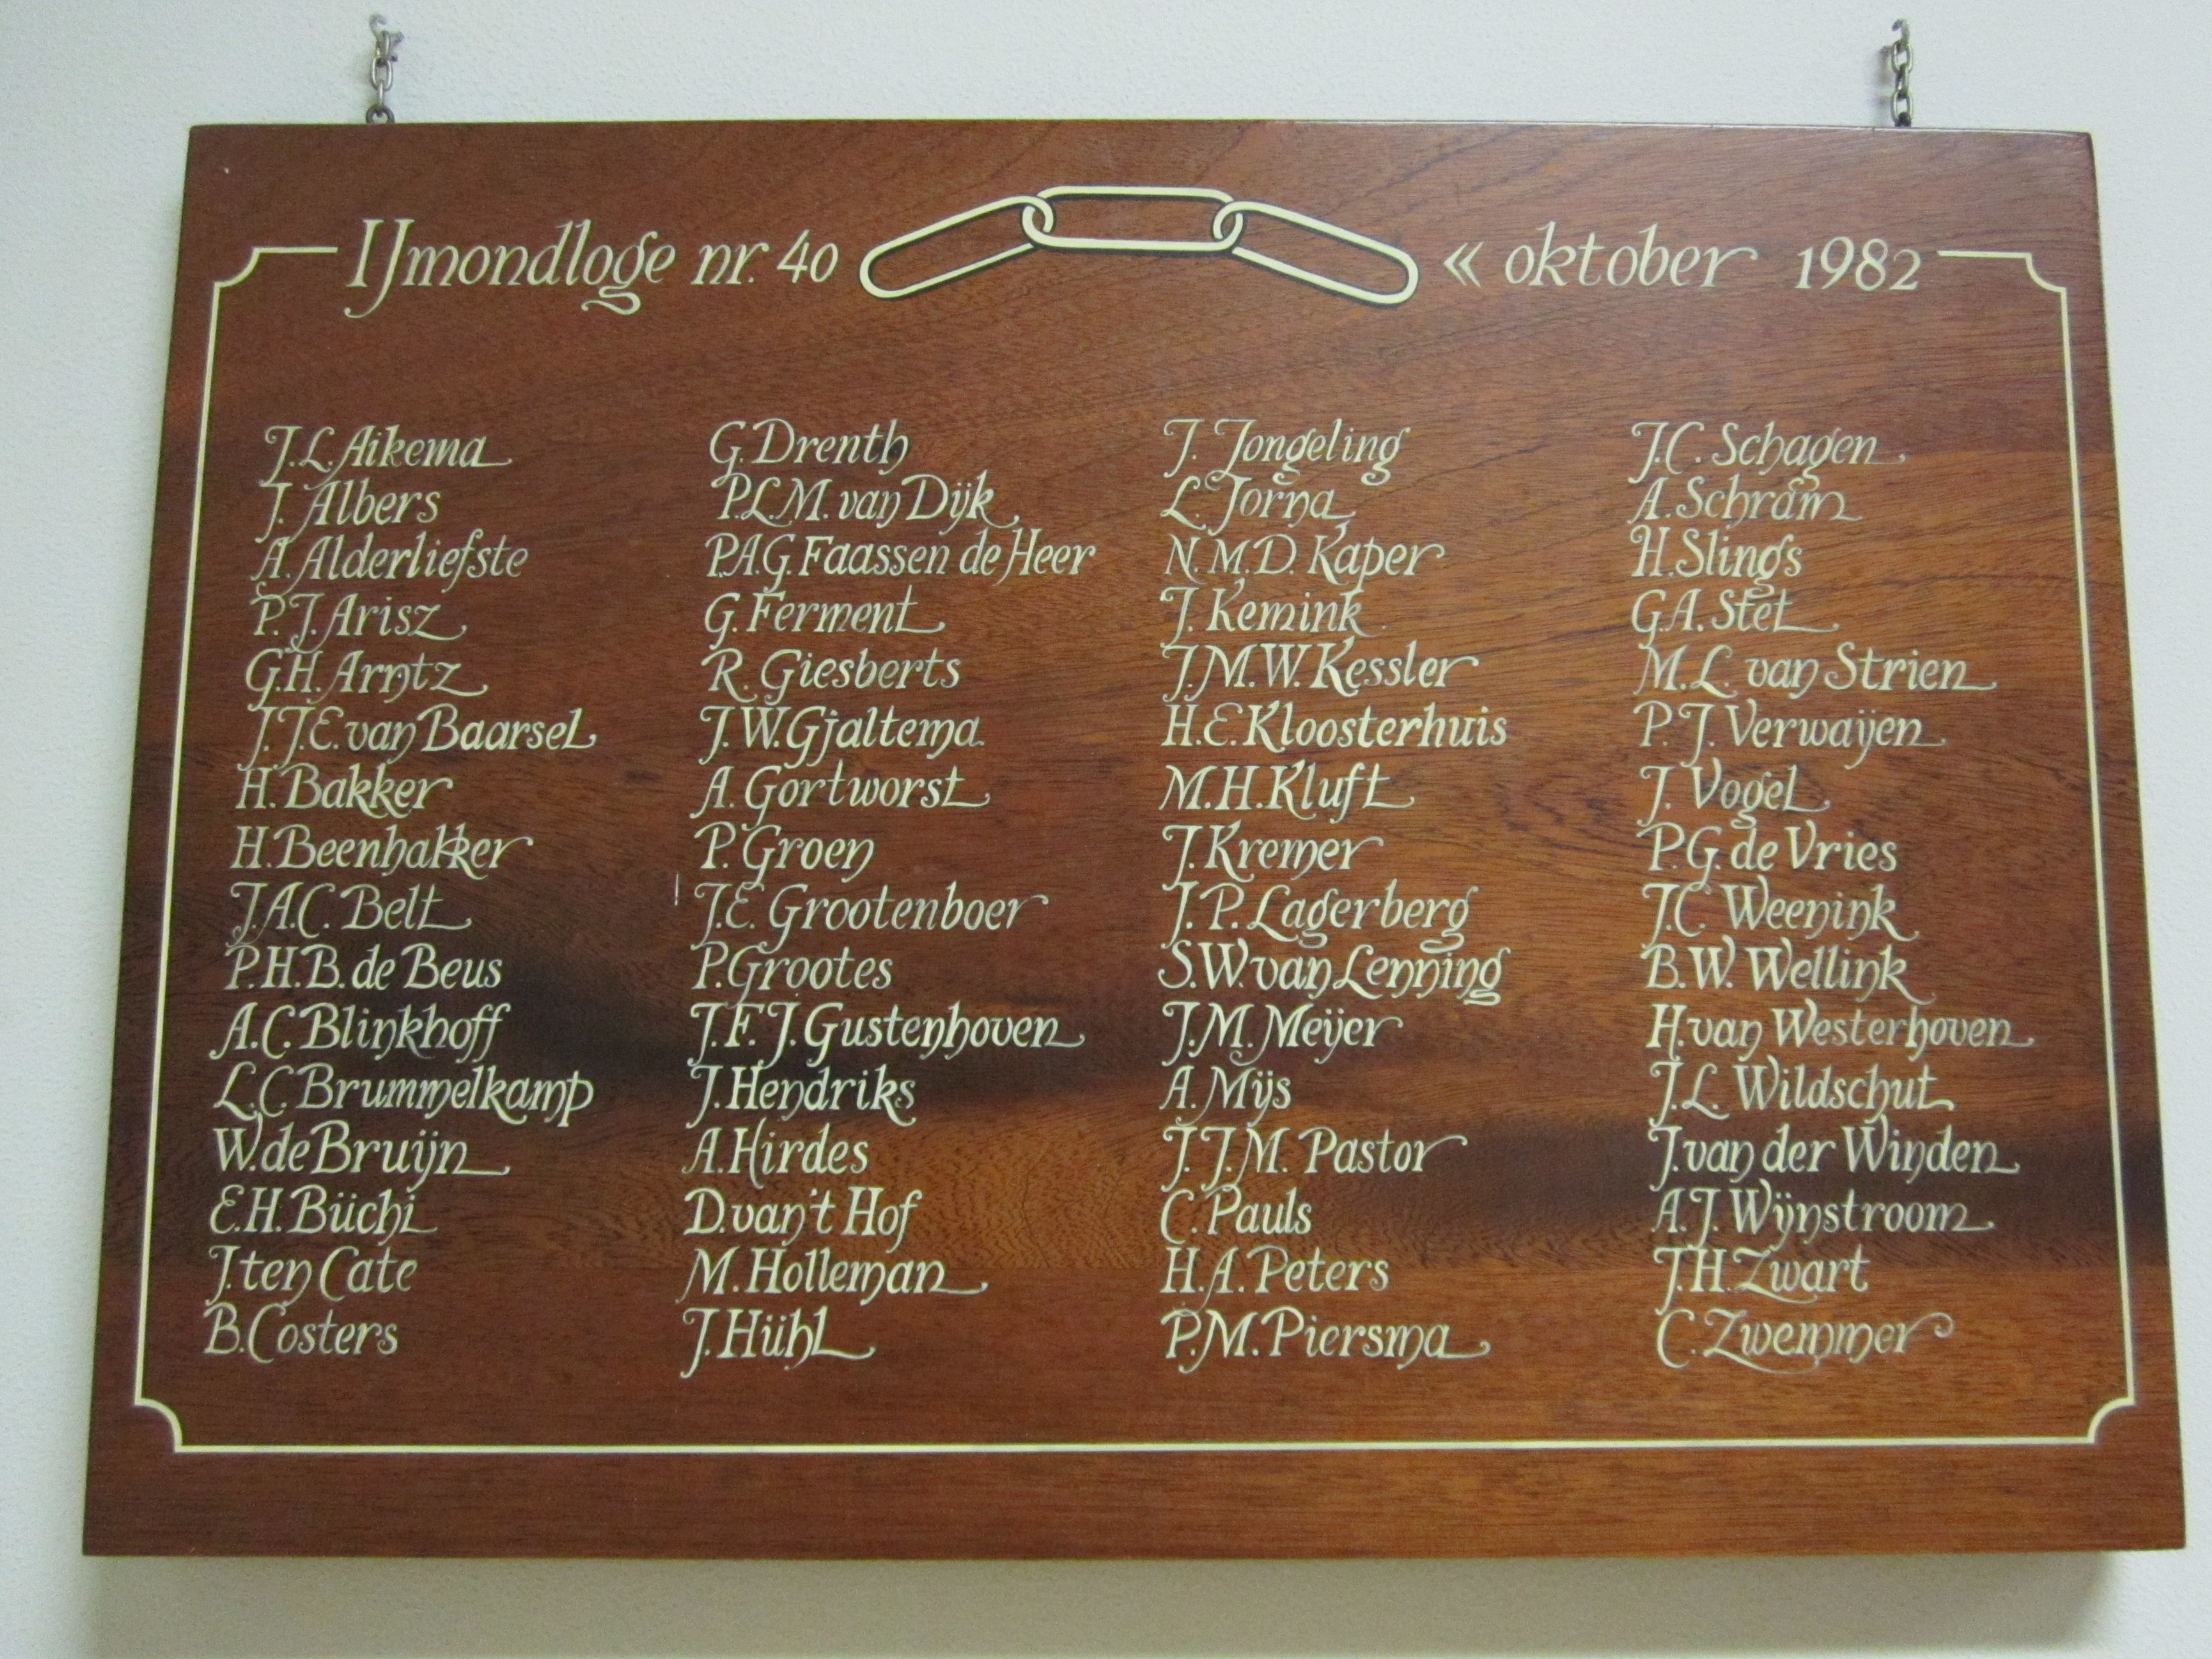 IJmondloge nr. 40 « oktober 1982
J.L. Aikema
J. Albers
A. Alderliefste
P.J. Arisz
G.H. Arntz
J.J.E. van Baarsel
H. Bakker
H. Beenhakker
J.A.C. Belt
P.H.B. de Beus
A.C. Blinkhoff
L.C. Brummelkamp
W. de Bruijn
E.H. Büchi
J. ten Cate
B. Costers
G. Drenth
P.L.M. van Dijk
P.A.G. Faassen de Heer
G. Ferment
R. Giesberts
J.W. Gjaltema
A. Gortworst
P. Groen
J.E. Grootenboer
P. Grootes
J.F.J. Gustenhoven
J. Hendriks
A. Hirdes
D. van 't Hof
M. Holleman
J. Hühl
J. Jongeling
L. Jorna
N.M.D. Kaper
J. Kemink
J.M.W. Kessler
H.E. Kloosterhuis
M.H. Kluft
J. Kremer
J.P. Lagerberg
S.W. van Lenning
J.M. Meijer
A. Mijs
J.J.M. Pastor
C. Pauls
H.A. Peters
P.M. Piersma
J.C. Schagen
A. Schram
H. Slings
G.A. Stet
M.L. van Strien
P.J. Verwaijen
J. Vogel
P.G. de Vries
J.C. Weenink
B.W. Wellink
H. van Westerhoven
J.L. Wildschut
J. van der Winden
A.J. Wijnstroom
J.H. Zwart
C. Zwemmer